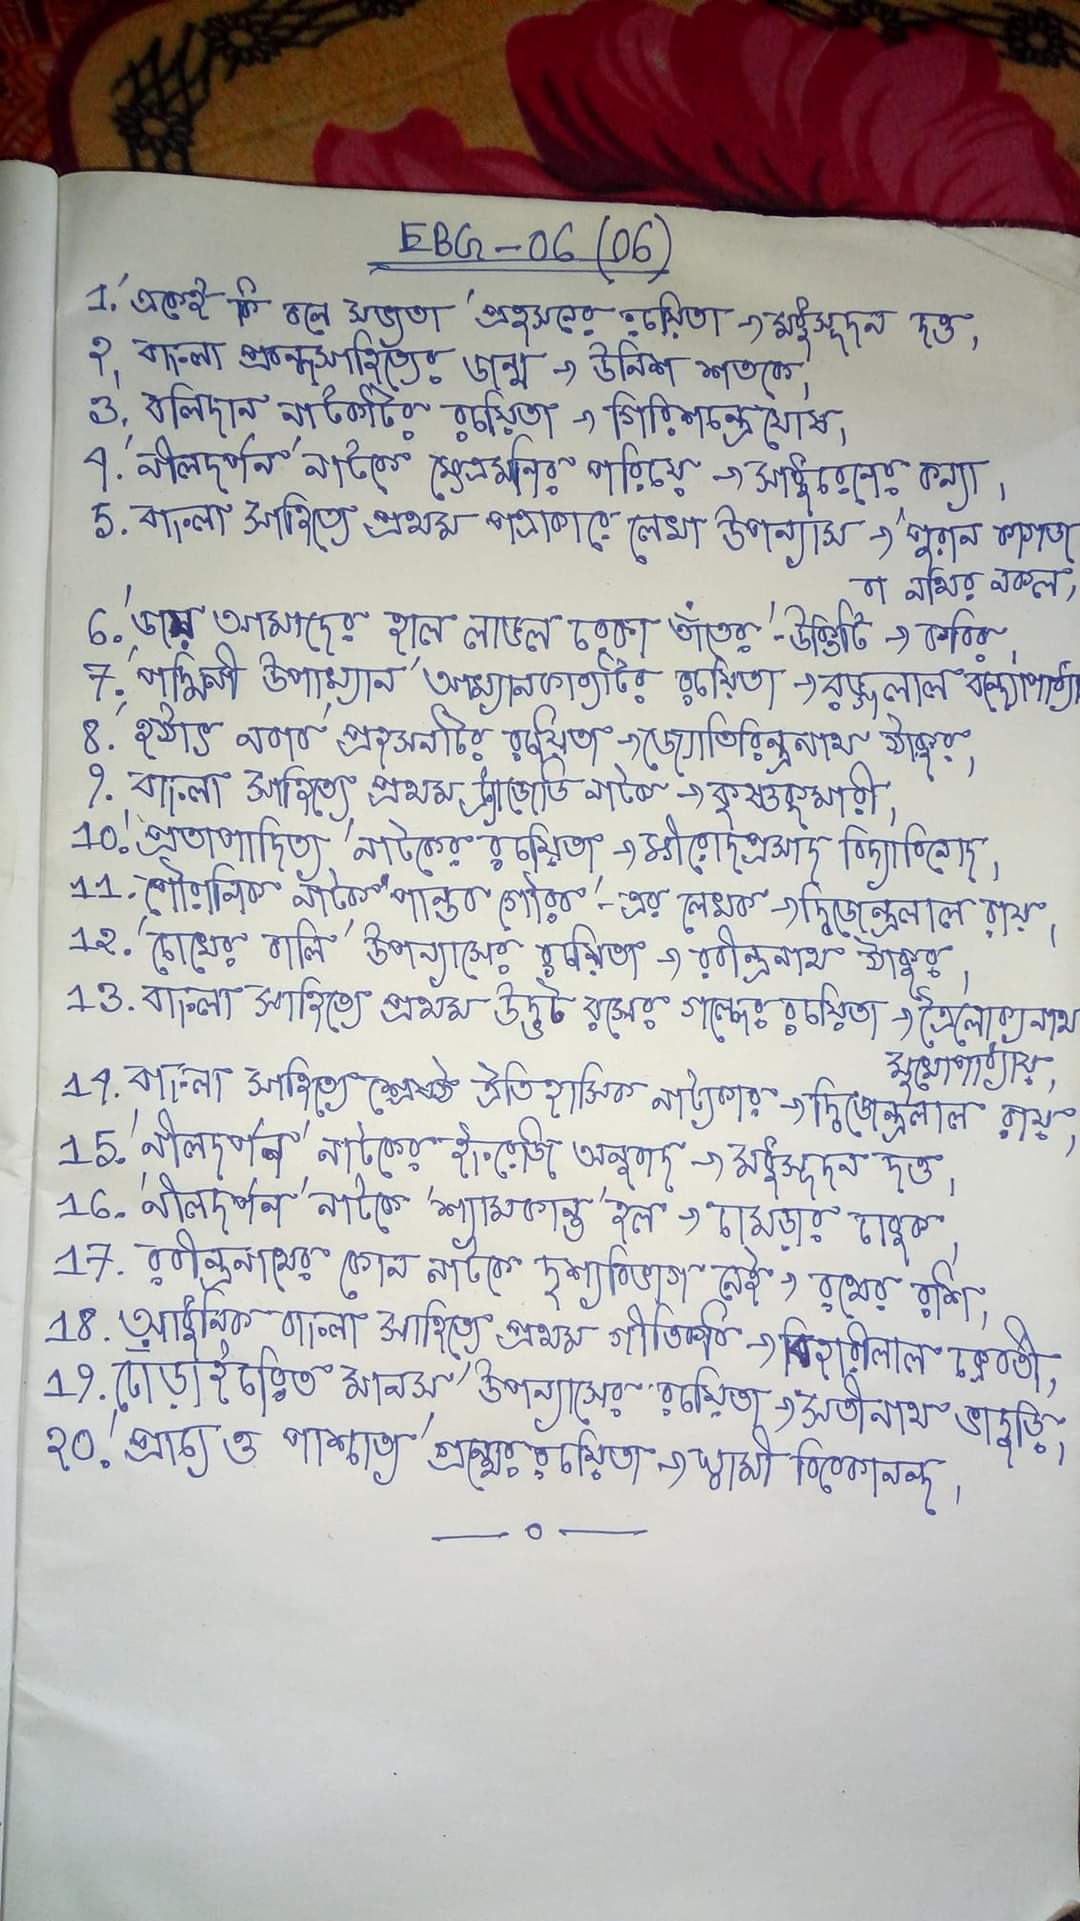 EBG-06 (06)
1. 'একেই কি বলে সভ্যতা' প্রহসনের রচয়িতা → মধুসূদন দত্ত,
২, বাংলা প্রবন্ধসাহিত্যের জন্ম → উনিশ শতকে,
3. বলিদান নাটকটির রচয়িতা → গিরিশচন্দ্র ঘোষ,
4. 'নীলদর্পন' নাটকে ক্ষেত্রমনির পরিচয় → সাধুচরনের কন্যা,
5. বাংলা সাহিত্যে প্রথম পত্রাকারে লেখা উপন্যাস → 'পুরান কাগজ
বা নথির নকল,
6. 'জয় আমাদের হাল লাঙল চরকা তাঁতের'-উক্তিটি → কবির,
7. 'পদ্মিনী উপাখ্যান' আখ্যানকাব্যটির রচয়িতা → রঙ্গলাল বন্দ্যোপাধ্যা
8. 'হঠাৎ নবাব' প্রহসনটির রচয়িতা → জ্যোতিরিন্দ্রনাথ ঠাকুর,
9. বাংলা সাহিত্যে প্রথম ট্র্যাজেডি নাটক → কৃষ্ণকুমারী,
10. 'প্রতাপাদিত্য' নাটকের রচয়িতা → ক্ষীরোদপ্রসাদ বিদ্যাবিনোদ,
11. পৌরানিক নাটক 'পান্ডব গৌরব'-এর লেখক → দ্বিজেন্দ্রলাল রায়,
12. 'চোখের বালি' উপন্যাসের রচয়িতা → রবীন্দ্রনাথ ঠাকুর,
13. বাংলা সাহিত্যে প্রথম উদ্ভট রসের গল্পের রচয়িতা → ত্রৈলোক্যনাথ
মুখোপাধ্যায়,
14. বাংলা সাহিত্যে শ্রেষ্ঠ ঐতিহাসিক নাট্যকার → দ্বিজেন্দ্রলাল রায়,
15. 'নীলদর্পন' নাটকের ইংরেজি অনুবাদ → মধুসূদন দত্ত,
16. 'নীলদর্পন' নাটকে 'শ্যামকান্ত' হল → চামড়ার চাবুক,
17. রবীন্দ্রনাথের কোন নাটকে দৃশ্যবিভাগ নেই → রথের রশি,
18. আধুনিক বাংলা সাহিত্যে প্রথম গীতিকবি → বিহারীলাল চক্রবর্তী,
19. ঢোঁড়াই চরিত মানস' উপন্যাসের রচয়িতা → সতীনাথ ভাদুড়ি,
২0. 'প্রাচ্য ও পাশ্চাত্য' গ্রন্থের রচয়িতা → স্বামী বিবেকানন্দ,
— ০ —